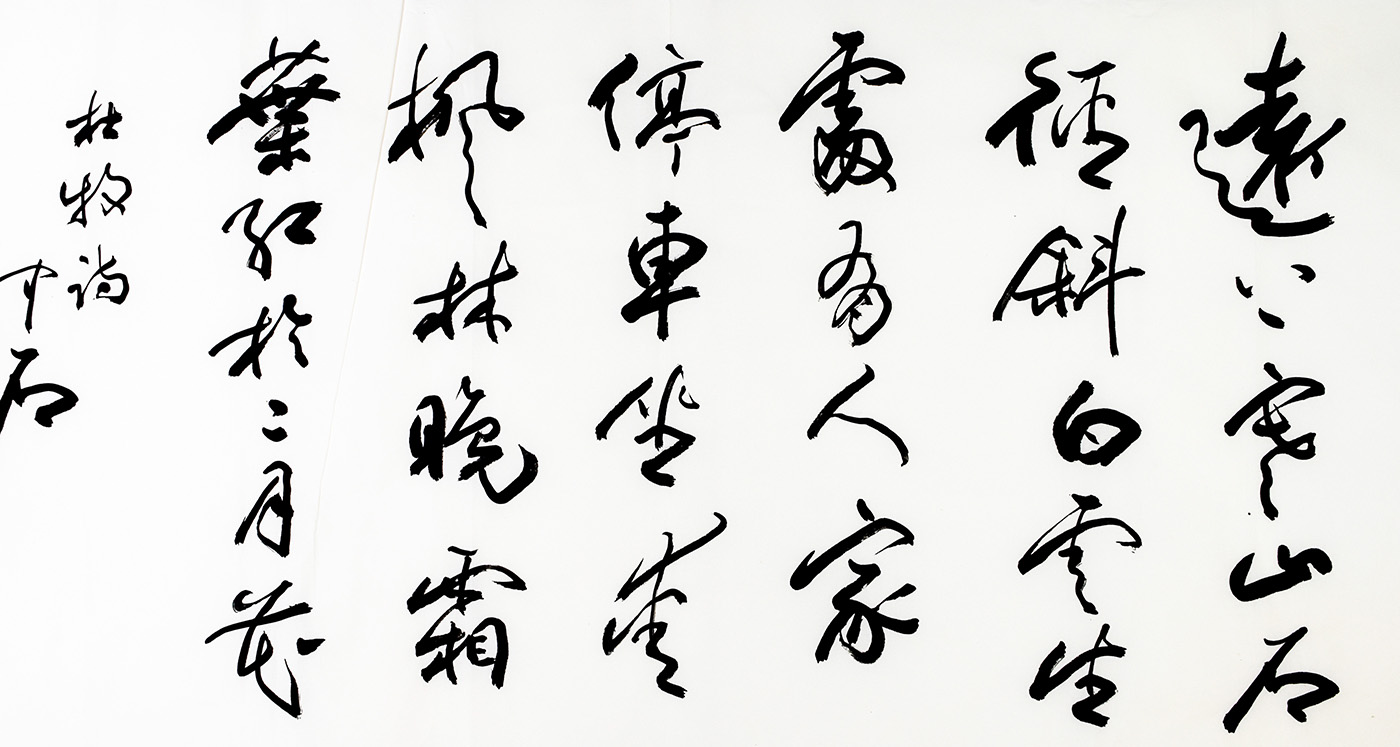 遠上寒山石
徑斜白雲生
處有人家
停車坐愛
楓林晚霜
葉紅於二月花
杜牧詩
中石